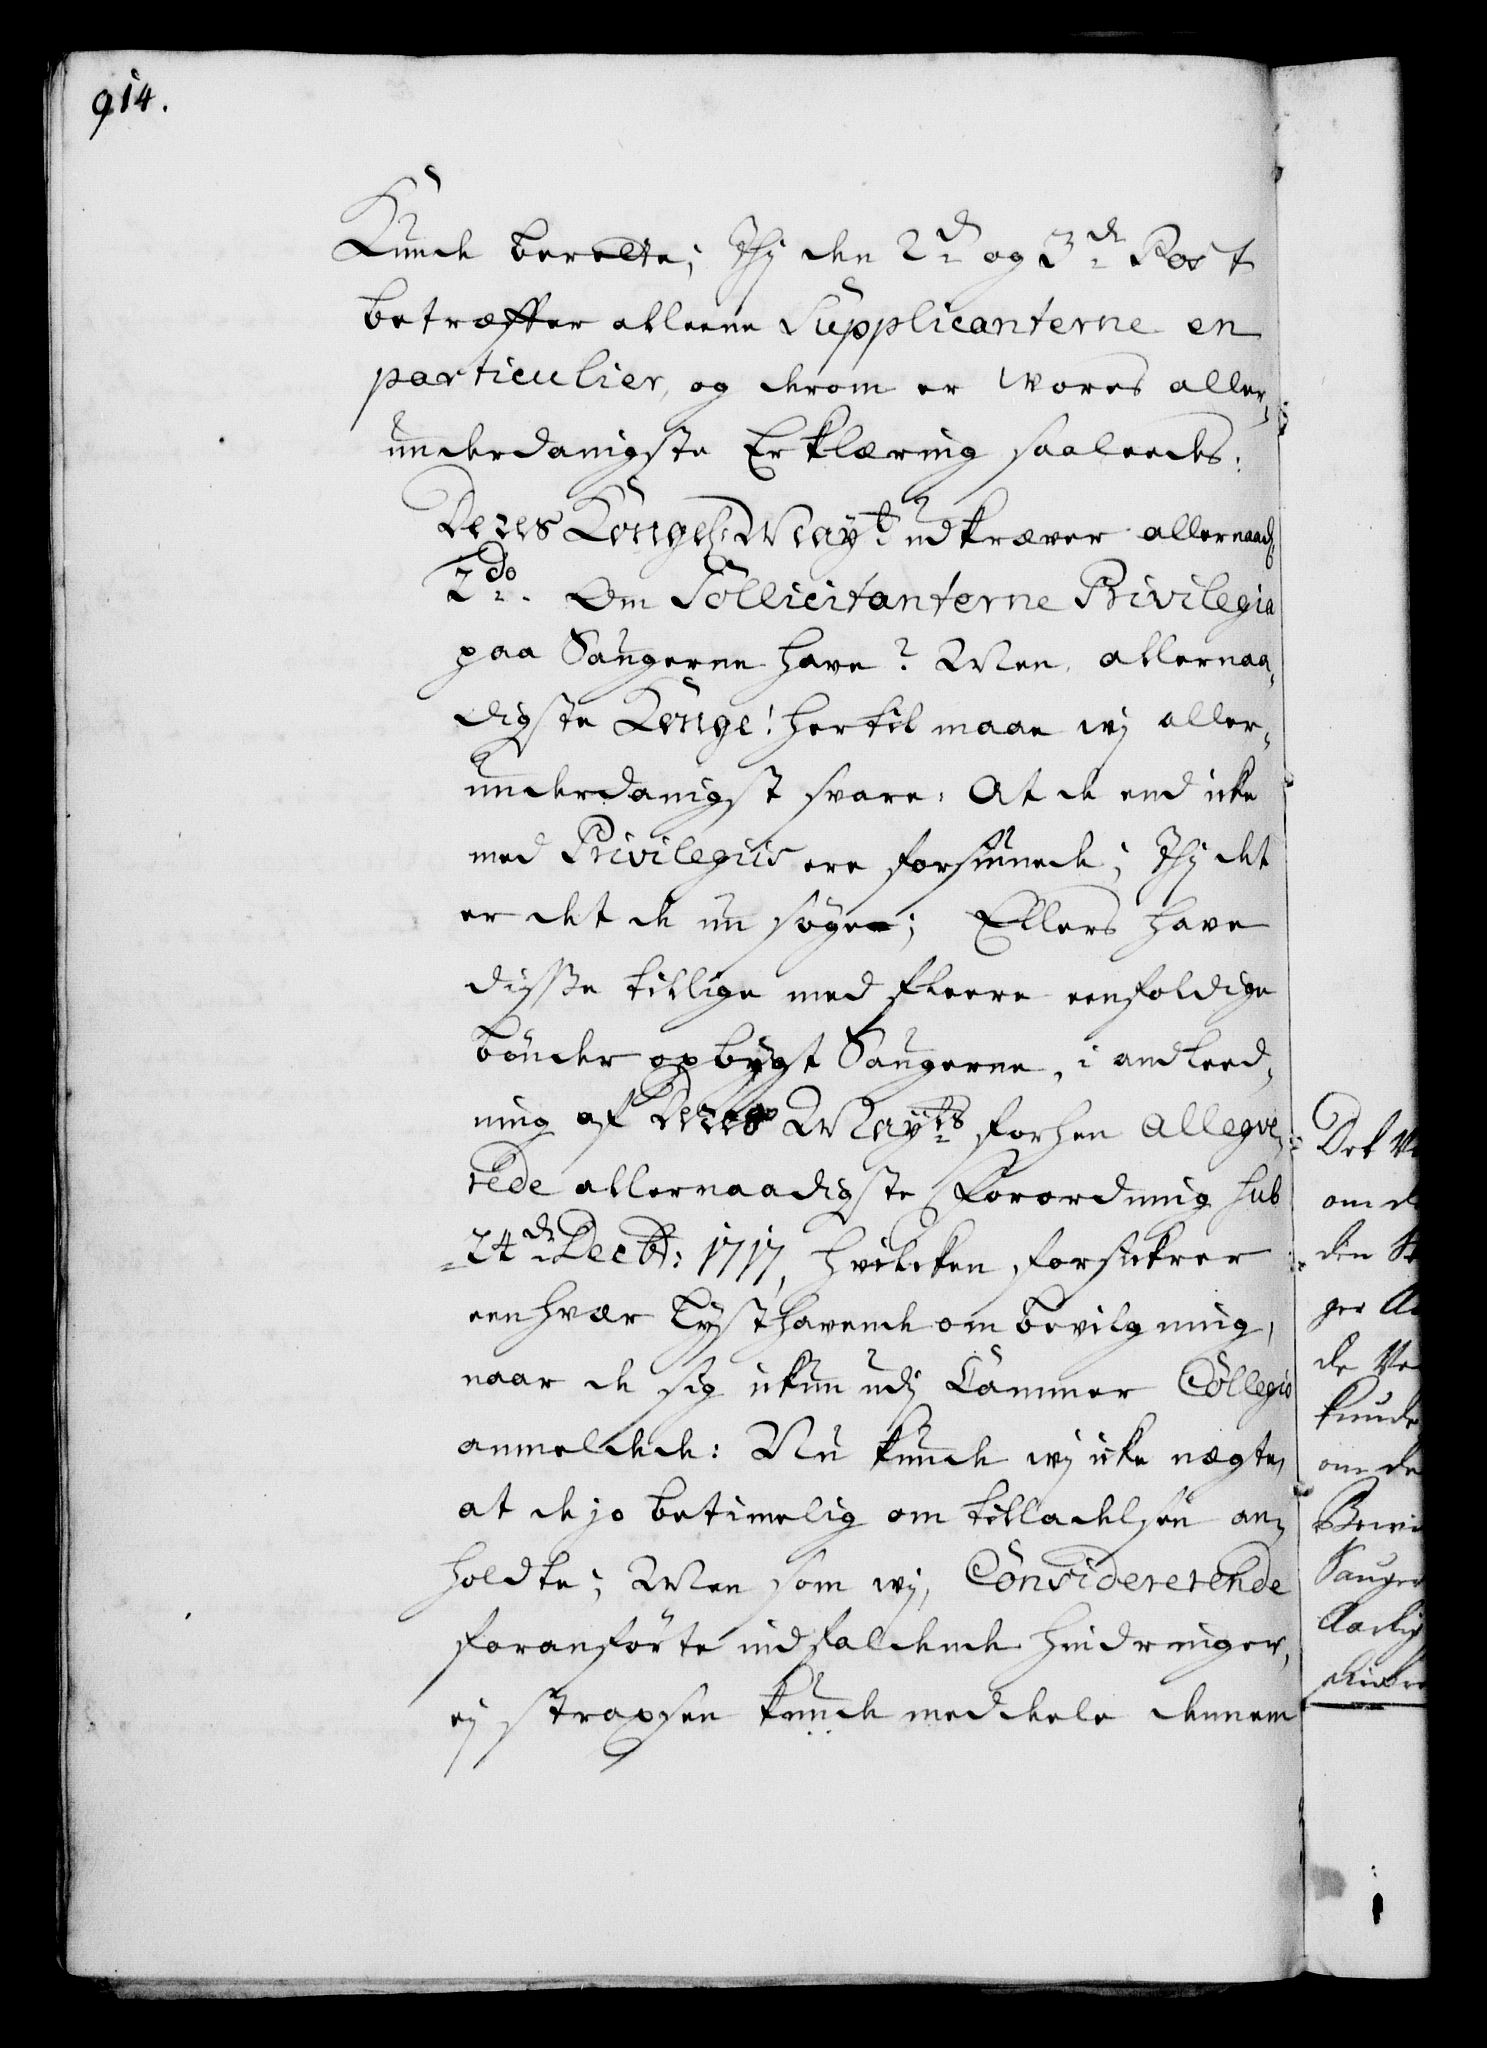 914.
Kunde berette; Thj den 2de og 3de Post
betræffer alleene Supplicanterne en
particulier, og derom er Wores aller-
underdanigste Erklæring saaleedes:
Deres Kongel: Mayt: udkræver allernaad:
2do. Om Sollicitanterne Privilegia
paa Saugerne have? Men, allernaa-
digste Konge! hertil maae wj aller-
underdanigst svare: At de end icke
med Privilegiis ere forsiunede; Thj det
er det de nu søger; Ellers have
disse tillige med fleere eenfoldige
bönder opbÿgt Saugerne, i andleed-
ning af Deres Mayts forhen allegve-
rede allernaadigste Forordning sub
24de Decbr: 1717, hvilcken forsickrer
een hvær Lÿsthavende om bevilgning,
naar de sig ickun udj Cammer Collegio
anmeldede: Nu kunde wj icke nægte,
at de jo betimelig om tilladelsen an-
holdte; Men som wj, Considererende
foranförte indfaldende hindringer,
ej strapsen kunde meddele dennem
Det
om d
den
ger
de
kunde
om de
Sauger